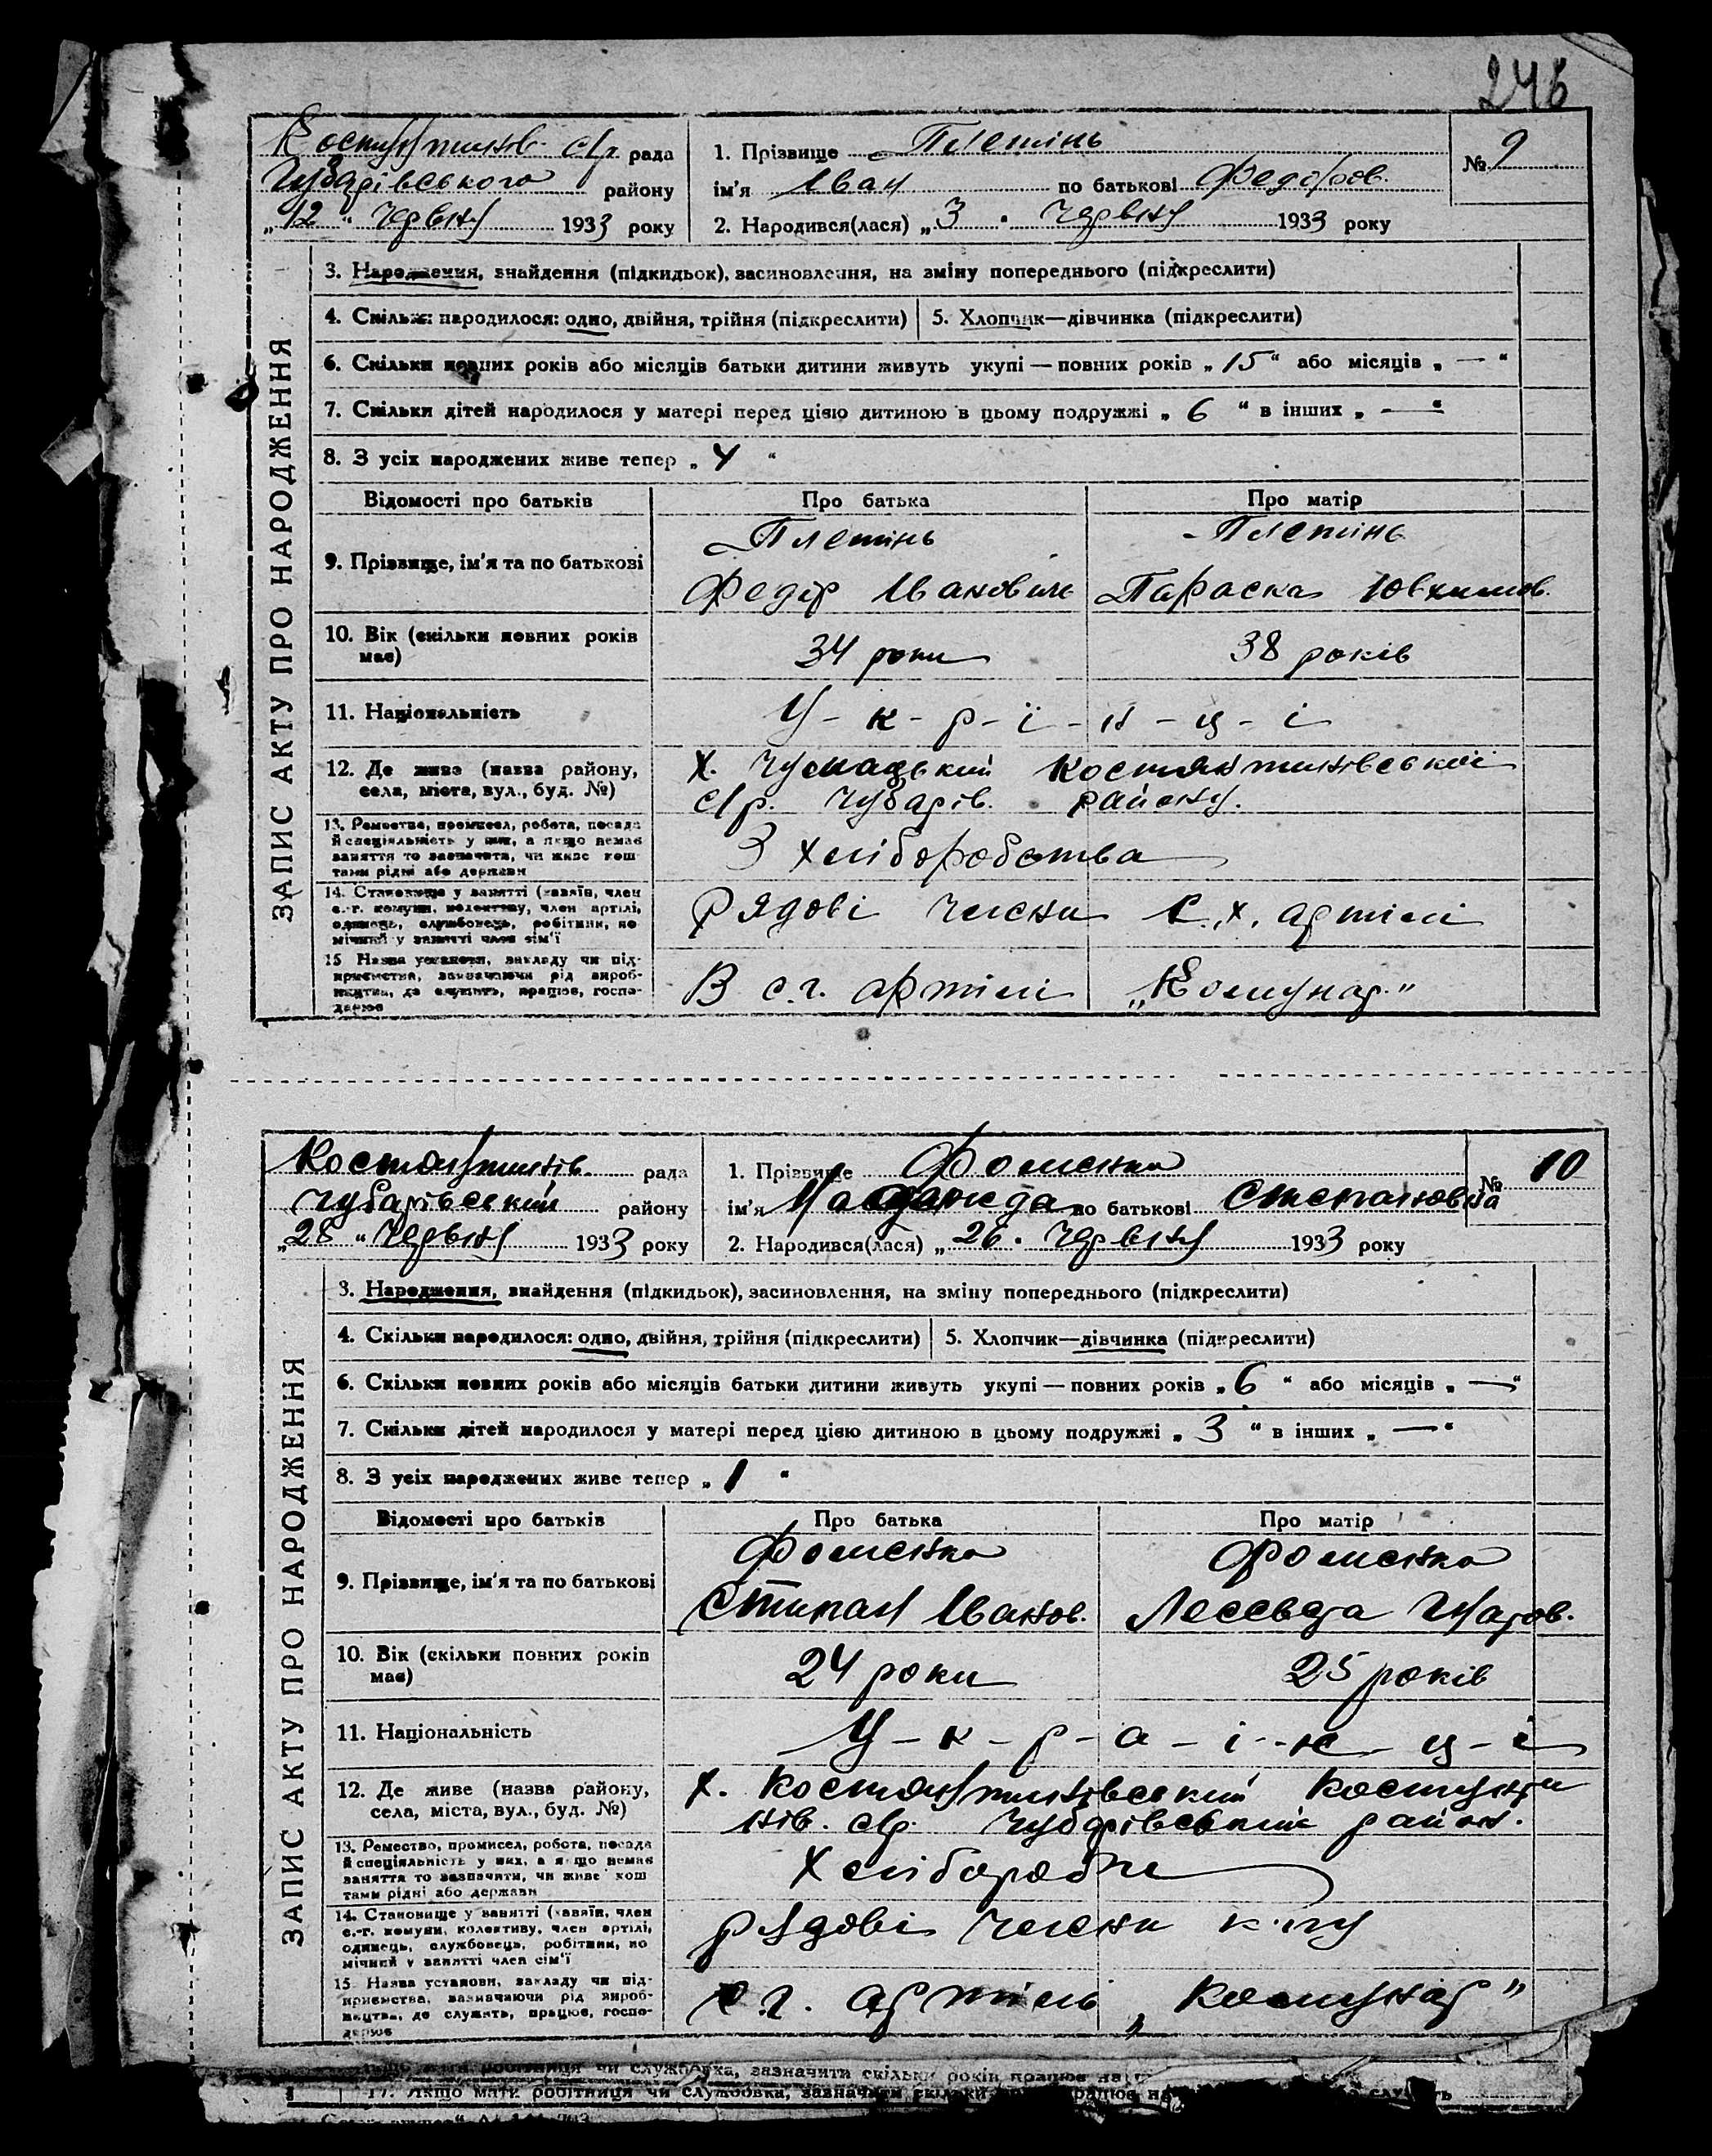 246
Костянтинів с/р рада
Чубарівського району
„12“ Червня 1933 року
1. Прізвище Плетінь
ім'я Іван по батькові Федоров.
№ 9
2. Народився(лася) „3“ Червня 1933 року
ЗАПИС АКТУ ПРО НАРОДЖЕННЯ
3. Народження, знайдення (підкидьок), засиновлення, на зміну попереднього (підкреслити)
4. Скільки народилося: одно, двійня, трійня (підкреслити) 5. Хлопчик—дівчинка (підкреслити)
6. Скільки повних років або місяців батьки дитини живуть укупі — повних років „15“ або місяців „—“
7. Скільки дітей народилося у матері перед цією дитиною в цьому подружжі „6“ в інших „—“
8. З усіх народжених живе тепер „4“
Відомості про батьків Про батька Про матір
9. Прізвище, ім'я та по батькові
Плетінь Плетінь
Федір Іванович Параска Ювхимов.
10. Вік (скільки повних років має) 34 роки 38 років
11. Національність У-к-р-ї-н-ц-і
12. Де живе (назва району, села, міста, вул., буд. №)
х. Чумацький Костянтинівської
с/р. Чубарів. району.
13. Ремество, промисел, робота, посада
й спеціяльність у них, а якщо немає
заняття то зазначити, чи живе кош
тами рідні або держави
З хліборобства
14. Становище у занятті (хазяїн, член
с.-г. комуни, колективу, член артілі,
одинець, службовець, робітник, по
мічний у занятті член сім'ї
Рядові члени с.х. артілі
15 Назва установи, закладу чи під-
приємства, зазначаючи рід вироб-
ництва, де служить, працює, госпо-
дарює
В с.г. артілі „Комунар“
Костянтинів. рада
Чубарівський району
„28“ Червня 1933 року
1. Прізвище Фоменко
ім'я по батькові Степановна
№ 10
2. Народився(лася) „26“ Червня 1933 року
ЗАПИС АКТУ ПРО НАРОДЖЕННЯ
3. Народження, знайдення (підкидьок), засиновлення, на зміну попереднього (підкреслити)
4. Скільки народилося: одно, двійня, трійня (підкреслити) 5. Хлопчик—дівчинка (підкреслити)
6. Скільки повних років або місяців батьки дитини живуть укупі — повних років „6“ або місяців „—“
7. Скільки дітей народилося у матері перед цією дитиною в цьому подружжі „3“ в інших „—“
8. З усіх народжених живе тепер „1“
Відомості про батьків Про батька Про матір
9. Прізвище, ім'я та по батькові
Фоменко Фоменко
Стипан Іванов.
10. Вік (скільки повних років має) 24 роки 25 років
11. Національність У-к-р-а-і-н-ц-і
12. Де живе (назва району, села, міста, вул., буд. №)
х. Костянтинівський Костянти
нів. с/р. Чубарівський район.
13. Ремество, промисел, робота, посада
й спеціяльність у них, а якщо немає
заняття то зазначити, чи живе кош
тами рідні або держави
Хлібороби
14. Становище у занятті (хазяїн, член
с.-г. комуни, колективу, член артілі,
одинець, службовець, робітник, по
мічний у занятті член сім'ї
рядові члени
15. Назва установи, закладу чи під-
приємства, зазначаючи рід вироб-
ництва, де служить, працює, госпо-
дарює
с.г. артіль „Комунар“
чи службовка, зазначити скільки років працює
17. Якщо мати робітниця чи службовка, зазначити скільки